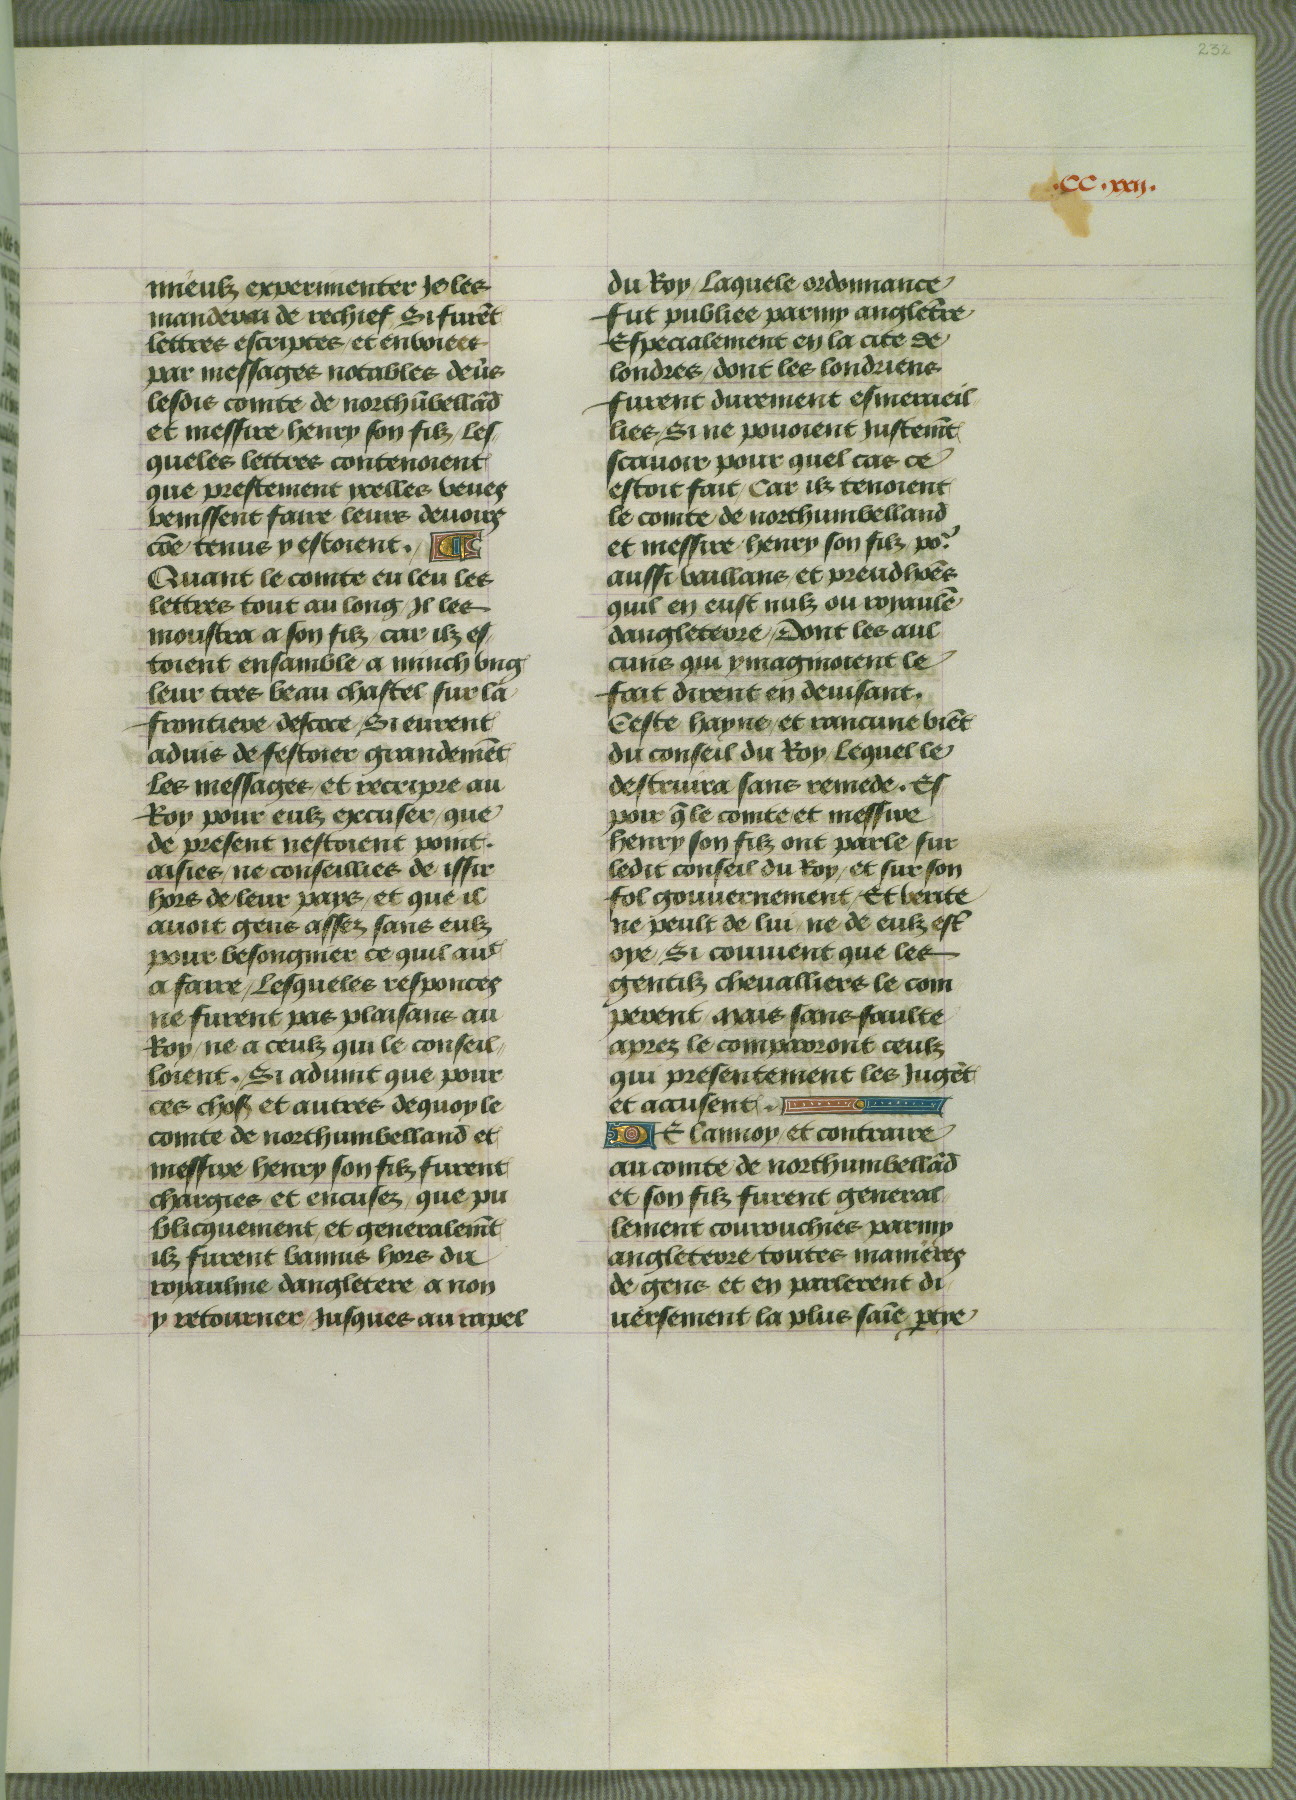 232
.CC.xxij.
mieulz experimenter Je les
manderai de rechief, Si furēt
lettres escriptes et envoiees
par messages notables deūs
lesdis comte de northūbellād
et messire henry son filz, les
queles lettres contenoient
que prestement ycelles veues
venissent faire leurs devoirs
cōe tenus y estoient.
Quant le comte eu leu les
lettres tout au long Jl les
moustra a son filz, car ilz es
toient ensamble a nimch vng
leur tres beau chastel sur la
frontiere descoce, Si eurent
aduis de festoier grandemēt
les messages, et rescripre au
Roy pour eulz excuser, que
de present nestoient point
aisies, ne conseillies de issir
hors de leur pays, et que il
auoit gens assez sans eulz
pour besongnier ce quil auoit
a faire, Lesqueles responces
ne furent pas plaisans au
Roy, ne a ceulz qui le conseil
loient. Si aduint que pour
ces choses et autres dequoy le
comte de northumbelland et
messire henry son filz furent
chargies et encusez, que pu
blicquement et generalemēt
ilz furent bannis hors du
royaulme dangletere a non
y retourner, Jusques au rapel
du Roy, Laquele ordonnance
fut publiee parmy angletēre
Especialement en la cite de
londres, dont les londriens
furent durement esmerueil
lies, Si ne pouoient Justemēt
scauoir pour quel cas ce
estoit fait, Car ilz tenoient
le comte de northumbelland
et messire henry son filz po.
aussi vaillans et preudhōes
quil en eust nulz ou royaulē
dangleterre, Dont les aul
cuns qui ymaginoient le
fait dirent en deuisant.
Ceste hayne et rancune viēt
du conseil du Roy, Lequel le
destruira sans remede. Es
poir q̄ le comte et messire
henry son filz ont parle sur
ledit conseil du Roy, et sur son
fol gouuernement, Et verite
ne peult de lui ne de eulz est
oye, Si conuient que les
gentilz cheualliers le com
perent mais sans faulte
aprez le comparront ceulz
qui presentement les Jugēt
et accusent.
DE lannoy et contraire
au comte de northumbellād
et son filz furent general
lement courouchies parmy
angleterre toutes manieres
de gens et en parlerent di
uersement la plus saīe ptye